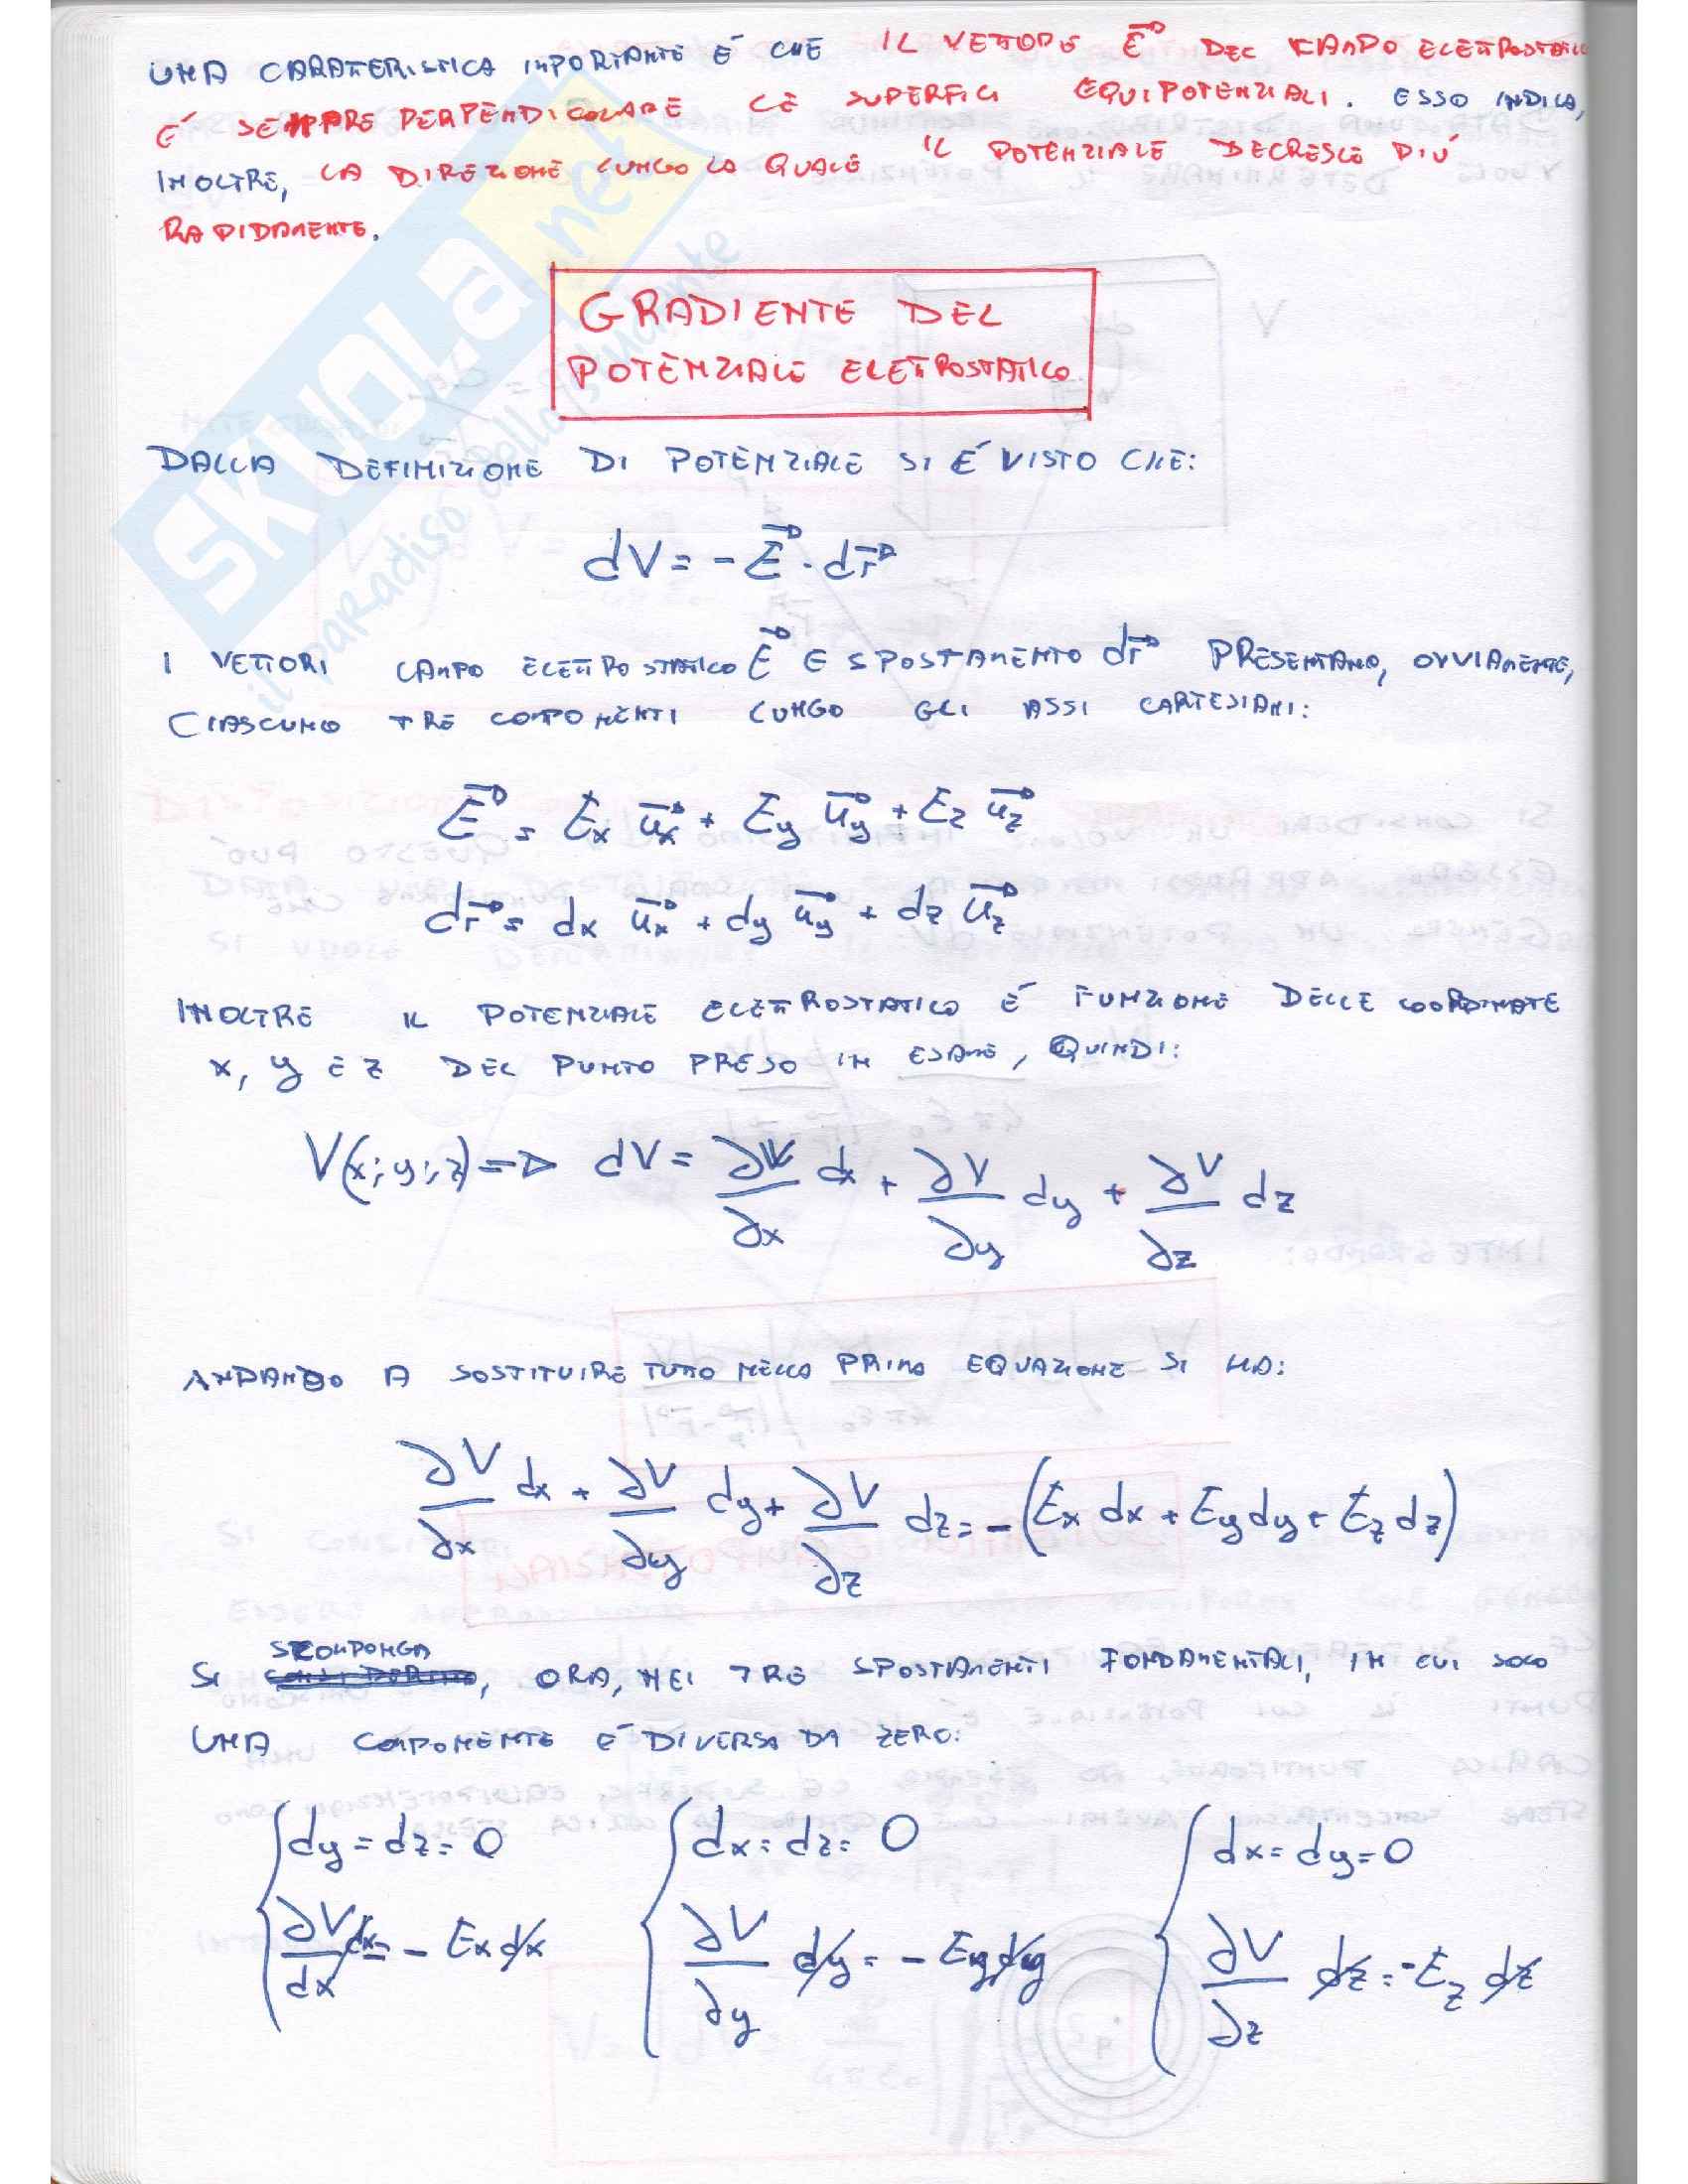 UNA CARATTERISTICA IMPORTANTE É CHE IL VETTORE E⃗ DEL CAMPO ELETTROSTATICO
É SEMPRE PERPENDICOLARE LE SUPERFICI EQUIPOTENZIALI. ESSO INDICA,
INOLTRE, LA DIREZIONE LUNGO LA QUALE IL POTENZIALE DECRESCE PIÚ
RAPIDAMENTE.
GRADIENTE DEL
POTENZIALE ELETTROSTATICO
DALLA DEFINIZIONE DI POTENZIALE SI É VISTO CHE:
dV = - E⃗ · dr⃗
I VETTORI CAMPO ELETTROSTATICO E⃗ E SPOSTAMENTO dr⃗ PRESENTANO, OVVIAMENTE,
CIASCUNO TRE COMPONENTI LUNGO GLI ASSI CARTESIANI:
E⃗ = Ex u⃗x + Ey u⃗y + Ez u⃗z
dr⃗ = dx u⃗x + dy u⃗y + dz u⃗z
INOLTRE IL POTENZIALE ELETTROSTATICO É FUNZIONE DELLE COORDINATE
x, y E z DEL PUNTO PRESO IN ESAME, QUINDI:
V(x;y;z) => dV = ∂V/∂x dx + ∂V/∂y dy + ∂V/∂z dz
ANDANDO A SOSTITUIRE TUTTO NELLA PRIMA EQUAZIONE SI HA:
∂V/∂x dx + ∂V/∂y dy + ∂V/∂z dz = - (Ex dx + Ey dy + Ez dz)
SI SCOMPONGA, ORA, NEI TRE SPOSTAMENTI FONDAMENTALI, IN CUI SOLO
UNA COMPONENTE É DIVERSA DA ZERO:
dy = dz = 0 dx = dz = 0 dx = dy = 0
∂V/dx dx = - Ex dx ∂V/∂y dy = - Ey dy ∂V/∂z dz = - Ez dz
SKUOLA.net
il paradiso dello studente